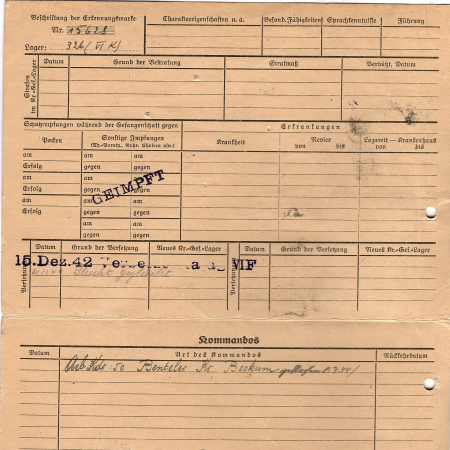 Beschriftung der Erkennungsmarke
Nr. 15628
Lager: 326 (VI K)
Charaktereigenschaften u. a.
Gesund. Fähigkeiten
Sprachkenntnisse
Führung
Strafen im Kr.-Gef.-Lager
Datum
Grund der Bestrafung
Strafmaß
Verbüßt, Datum
Schutzimpfungen während der Gefangenschaft gegen
Erkrankungen
Pocken
Sonstige Impfungen
(Ty.-Paraty., Ruhr, Cholera usw.)
Krankheit
Revier
von bis
Lazarett — Krankenhaus
von bis
am am am
Erfolg gegen gegen
am am am
Erfolg gegen gegen
am am am
Erfolg gegen gegen
am am
gegen gegen
GEIMPFT
Versetzung
Datum
Grund der Versetzung
Neues Kr.-Gef.-Lager
Versetzung
Datum
Grund der Versetzung
Neues Kr.-Gef.-Lager
15. Dez. 42
Kommandos
Datum
Art des Kommandos
Rückkehrdatum
Arb Kdo 50 Benteler Kr. Beckum